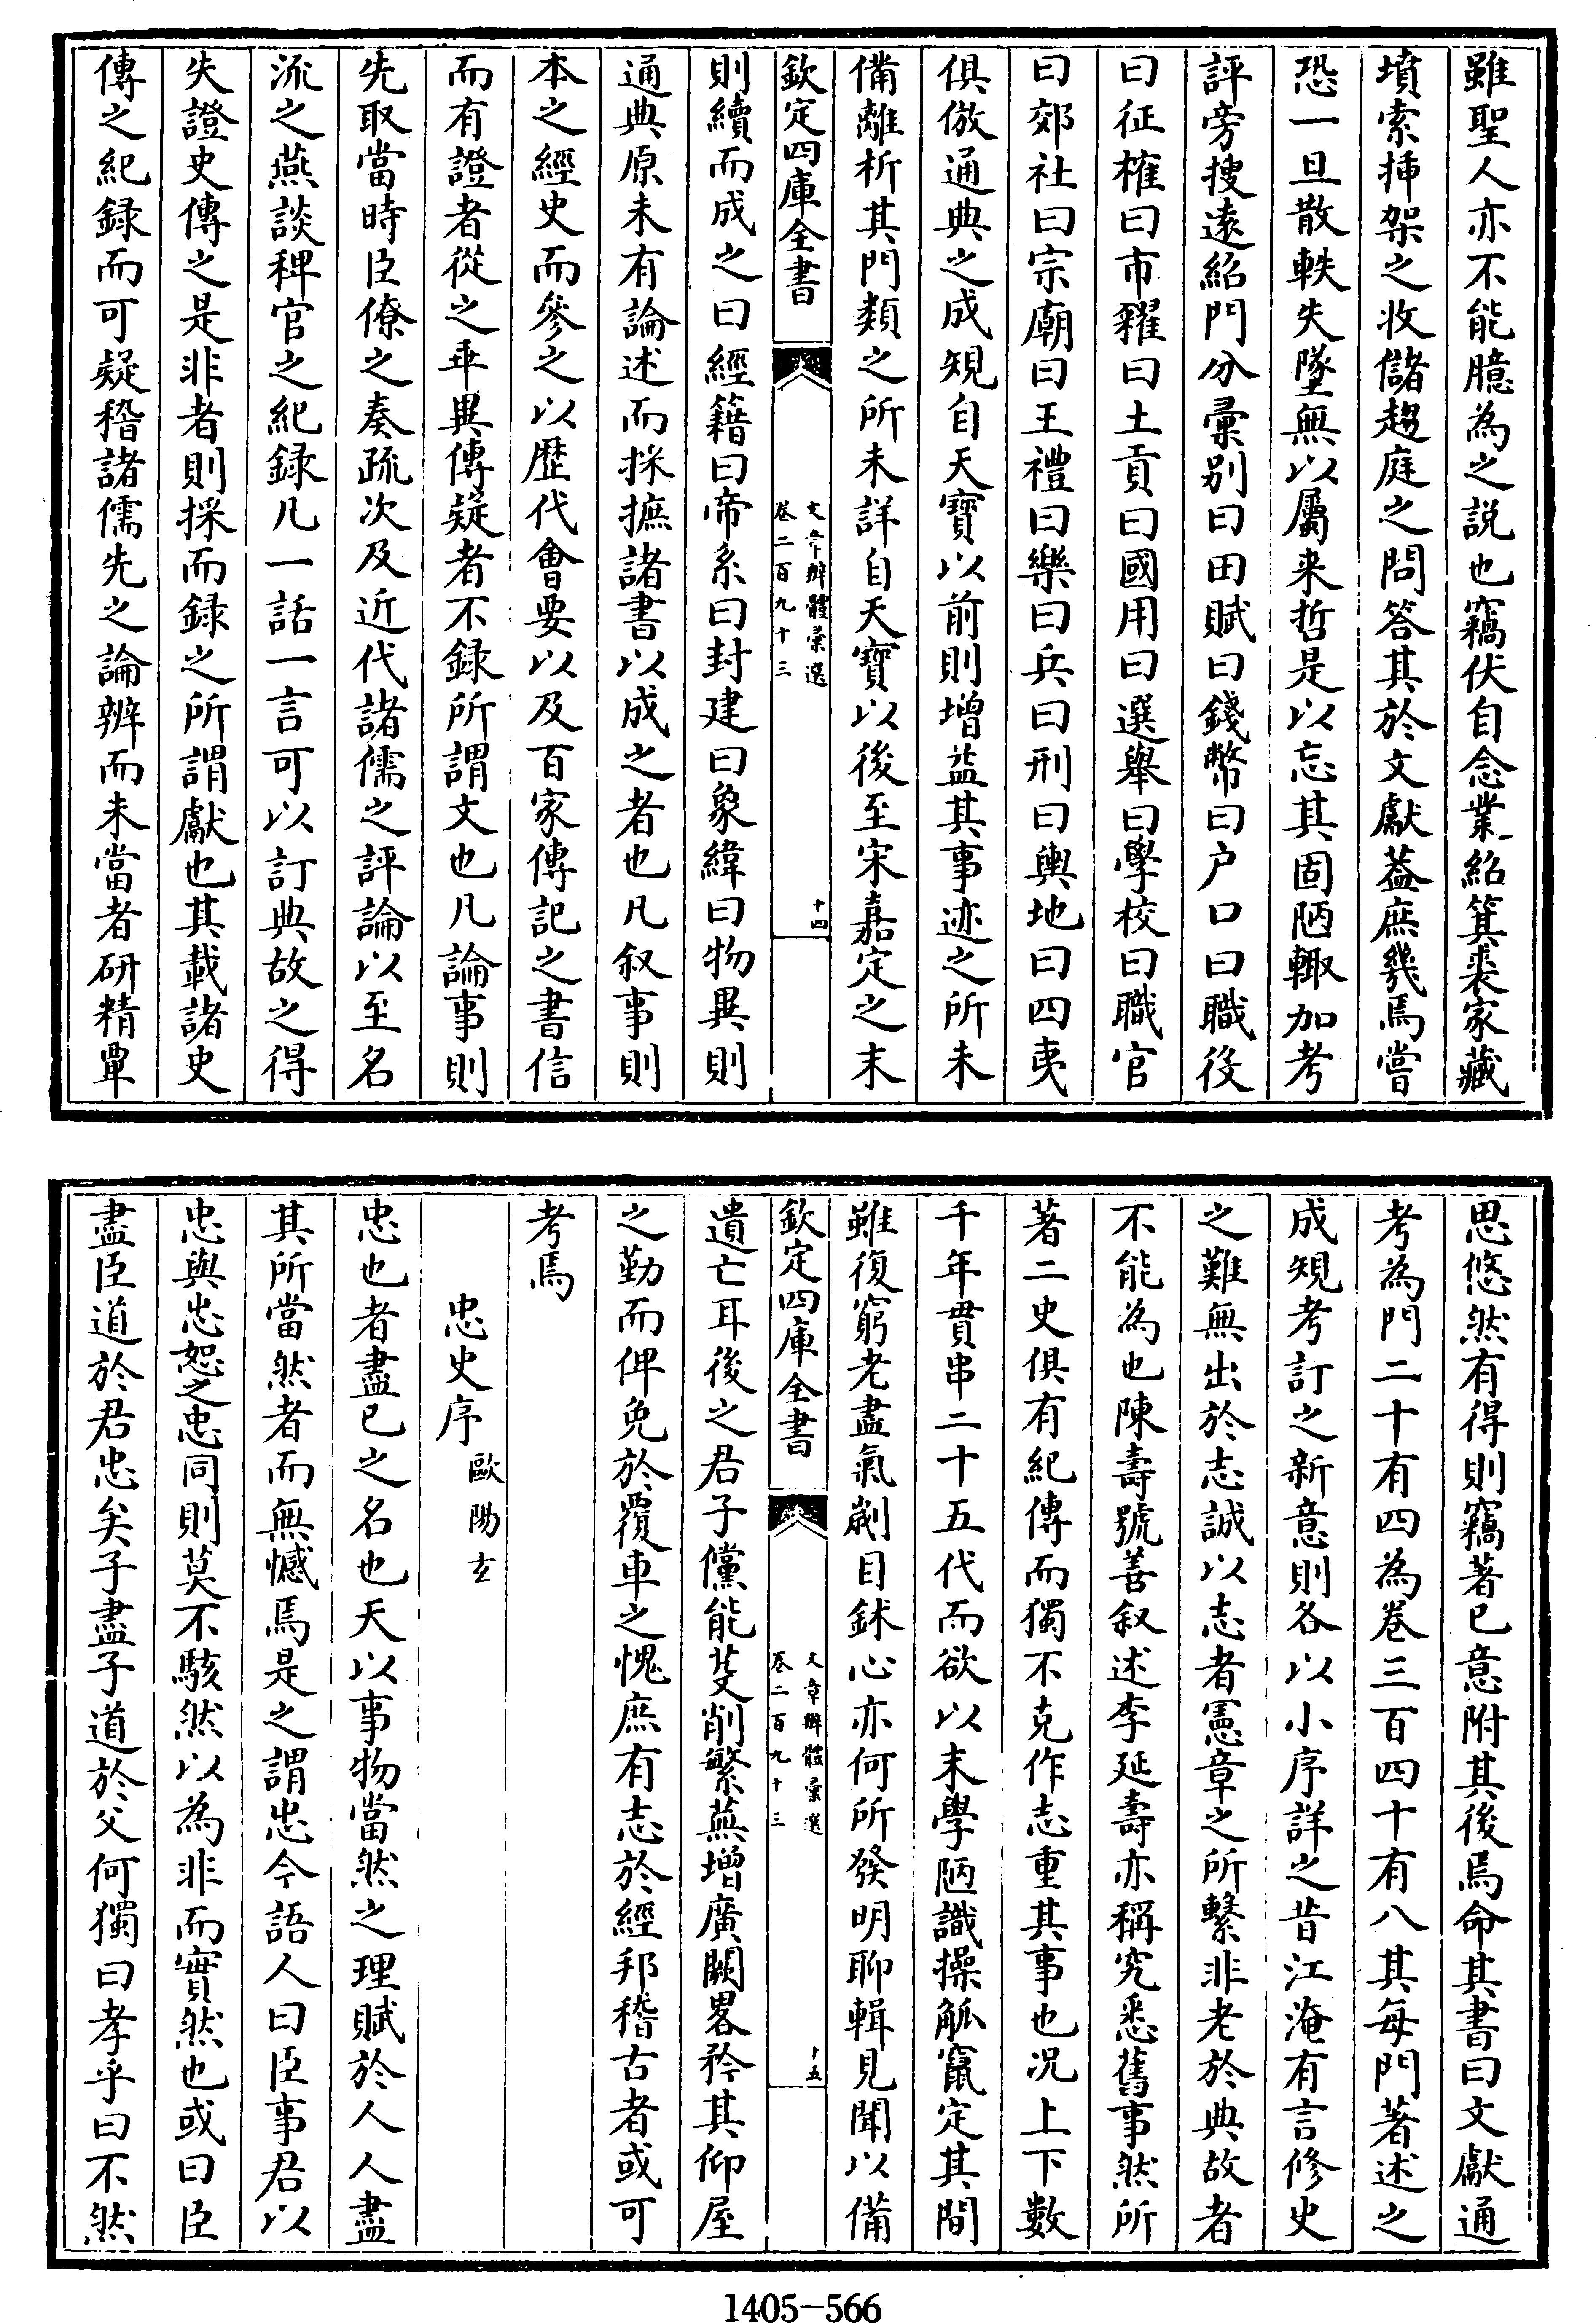 雖聖人亦不能臆為之説也竊伏自念業紹箕裘家藏
墳索挿架之收儲趨庭之問答其於文獻葢庶幾焉嘗
恐一旦散軼失墜無以屬来哲是以忘其固陋輙加考
評旁搜逺紹門分彚别曰田賦曰錢幣曰户口曰職役
曰征榷曰市糴曰土貢曰國用曰選舉曰學校曰職官
曰郊社曰宗廟曰王禮曰樂曰兵曰刑曰輿地曰四夷
俱倣通典之成規自天寶以前則增益其事迹之所未
備離析其門類之所未詳自天寶以後至宋嘉定之末
欽定四庫全書
文章辨體彚選
卷二百九十三
十四
則續而成之曰經籍曰帝系曰封建曰象緯曰物異則
通典原未有論述而採摭諸書以成之者也凡叙事則
本之經史而參之以歴代會要以及百家傳記之書信
而有證者從之乖異傳疑者不録所謂文也凡論事則
先取當時臣僚之奏疏次及近代諸儒之評論以至名
流之燕談稗官之紀録凡一話一言可以訂典故之得
失證史傳之是非者則採而録之所謂獻也其載諸史
傳之紀録而可疑稽諸儒先之論辨而未當者研精覃
思悠然有得則竊著已意附其後焉命其書曰文獻通
考為門二十有四為卷三百四十有八其每門著述之
成規考訂之新意則各以小序詳之昔江淹有言修史
之難無出於志誠以志者憲章之所繫非老於典故者
不能為也陳壽號善叙述李延壽亦稱究悉舊事然所
著二史俱有紀傳而獨不克作志重其事也况上下數
千年貫串二十五代而欲以末學陋識操觚竄定其間
雖復窮老盡氣劌目鉥心亦何所發明聊輯見聞以備
欽定四庫全書
文章辨體彚選
卷二百九十三
十五
遺亡耳後之君子儻能芟削繁蕪增廣闕畧矜其仰屋
之勤而俾免於覆車之愧庶有志於經邦稽古者或可
考焉
忠史序 歐陽玄
忠也者盡已之名也天以事物當然之理賦於人人盡
其所當然者而無憾焉是之謂忠今語人曰臣事君以
忠與忠恕之忠同則莫不駭然以為非而實然也或曰臣
盡臣道於君忠矣子盡子道於父何獨曰孝乎曰不然
1405-566